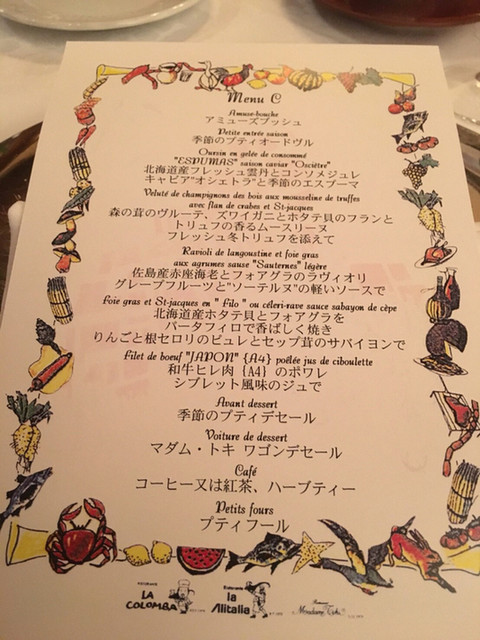 Menu C
Amuse-bouche
アミューズブッシュ
Petite entrée saison
季節のプティオードヴル
Oursin en gelée de consommé
"ESPUMAS" saison caviar "Osciètre"
北海道産フレッシュ雲丹とコンソメジュレ
キャビア"オシェトラ"と季節のエスプーマ
Velouté de champignons des bois aux mousseline de truffes
avec flan de crabes et St-jacques
森の茸のヴルーテ、ズワイガニとホタテ貝のフランと
トリュフの香るムースリーヌ
フレッシュ冬トリュフを添えて
Ravioli de langoustine et foie gras
aux agrumes sause "Sauternes" légère
佐島産赤座海老とフォアグラのラヴィオリ
グレープフルーツと"ソーテルヌ"の軽いソースで
foie gras et St-jacques en " Filo " ou céleri-rave sauce sabayon de cèpe
北海道産ホタテ貝とフォアグラを
パータフィロで香ばしく焼き
りんごと根セロリのピュレとセップ茸のサバイヨンで
Filet de boeuf "JAPON" {A4} poêlée jus de ciboulette
和牛ヒレ肉 {A4} のポワレ
シブレット風味のジュで
Avant dessert
季節のプティデセール
Voiture de dessert
マダム・トキ ワゴンデセール
Café
コーヒー又は紅茶、ハーブティー
Petits fours
プティフール
LA COLOMBA
la Alitalia
Madame Toki